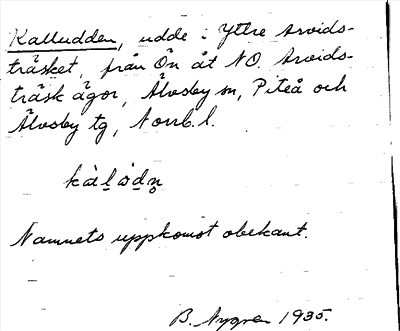 Kalludden, udde i Yttre Arvids-
träsket, från Ön åt NO. Arvids-
träsk ägor, Älvsby sn, Piteå och
Älvsby tg, Norrb. l.
kàlu̇dn̥
Namnets uppkomst obekant.
B. Nygren 1935.